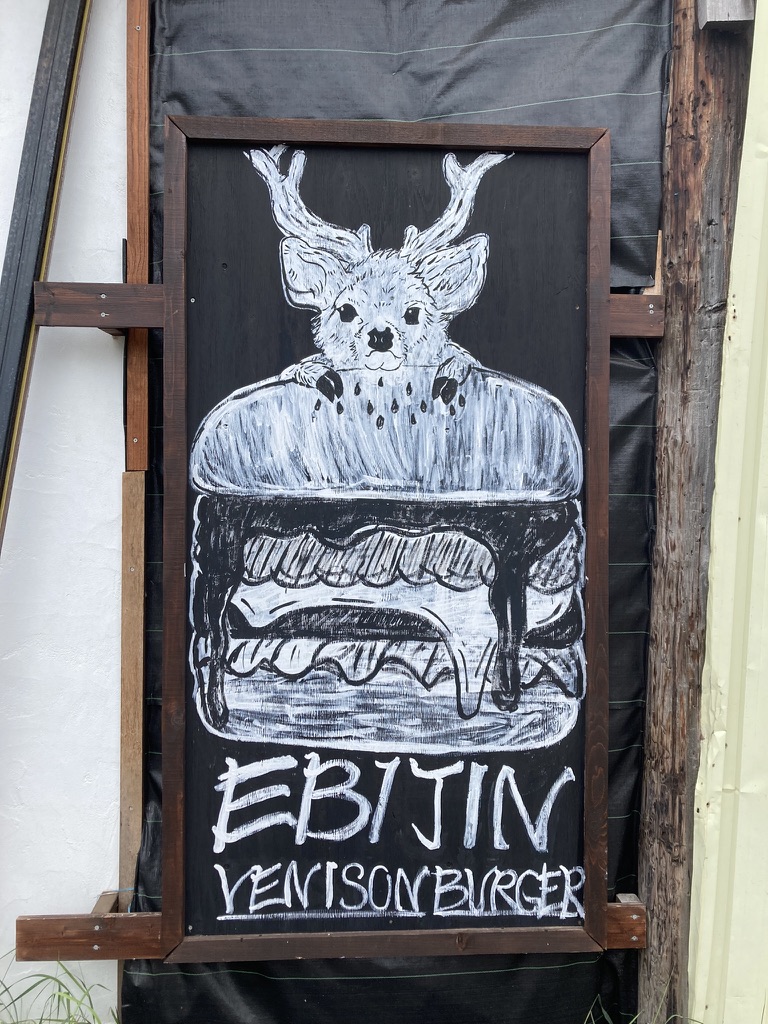 EBIJIN
VENISON BURGER